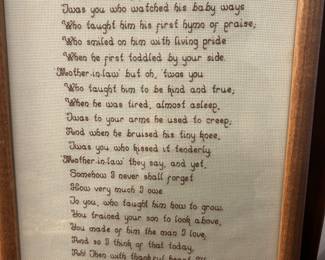 'Twas you who watched his baby ways
Who taught him his first hymn of praise;
Who smiled on him with living pride
When he first toddled by your side.
'Mother-in-law' but oh, 'twas you
Who taught him to be kind and true;
When he was tired, almost asleep,
'Twas to your arms he used to creep;
And when he bruised his tiny knee,
'Twas you who kissed it tenderly.
'Mother-in-law' they say, and yet,
Somehow I never shall forget
How very much I owe
To you, who taught him how to grow.
You trained your son to look above,
You made of him the man I love,
And so I think of that today,
Ah! Then with thankful heart I'll